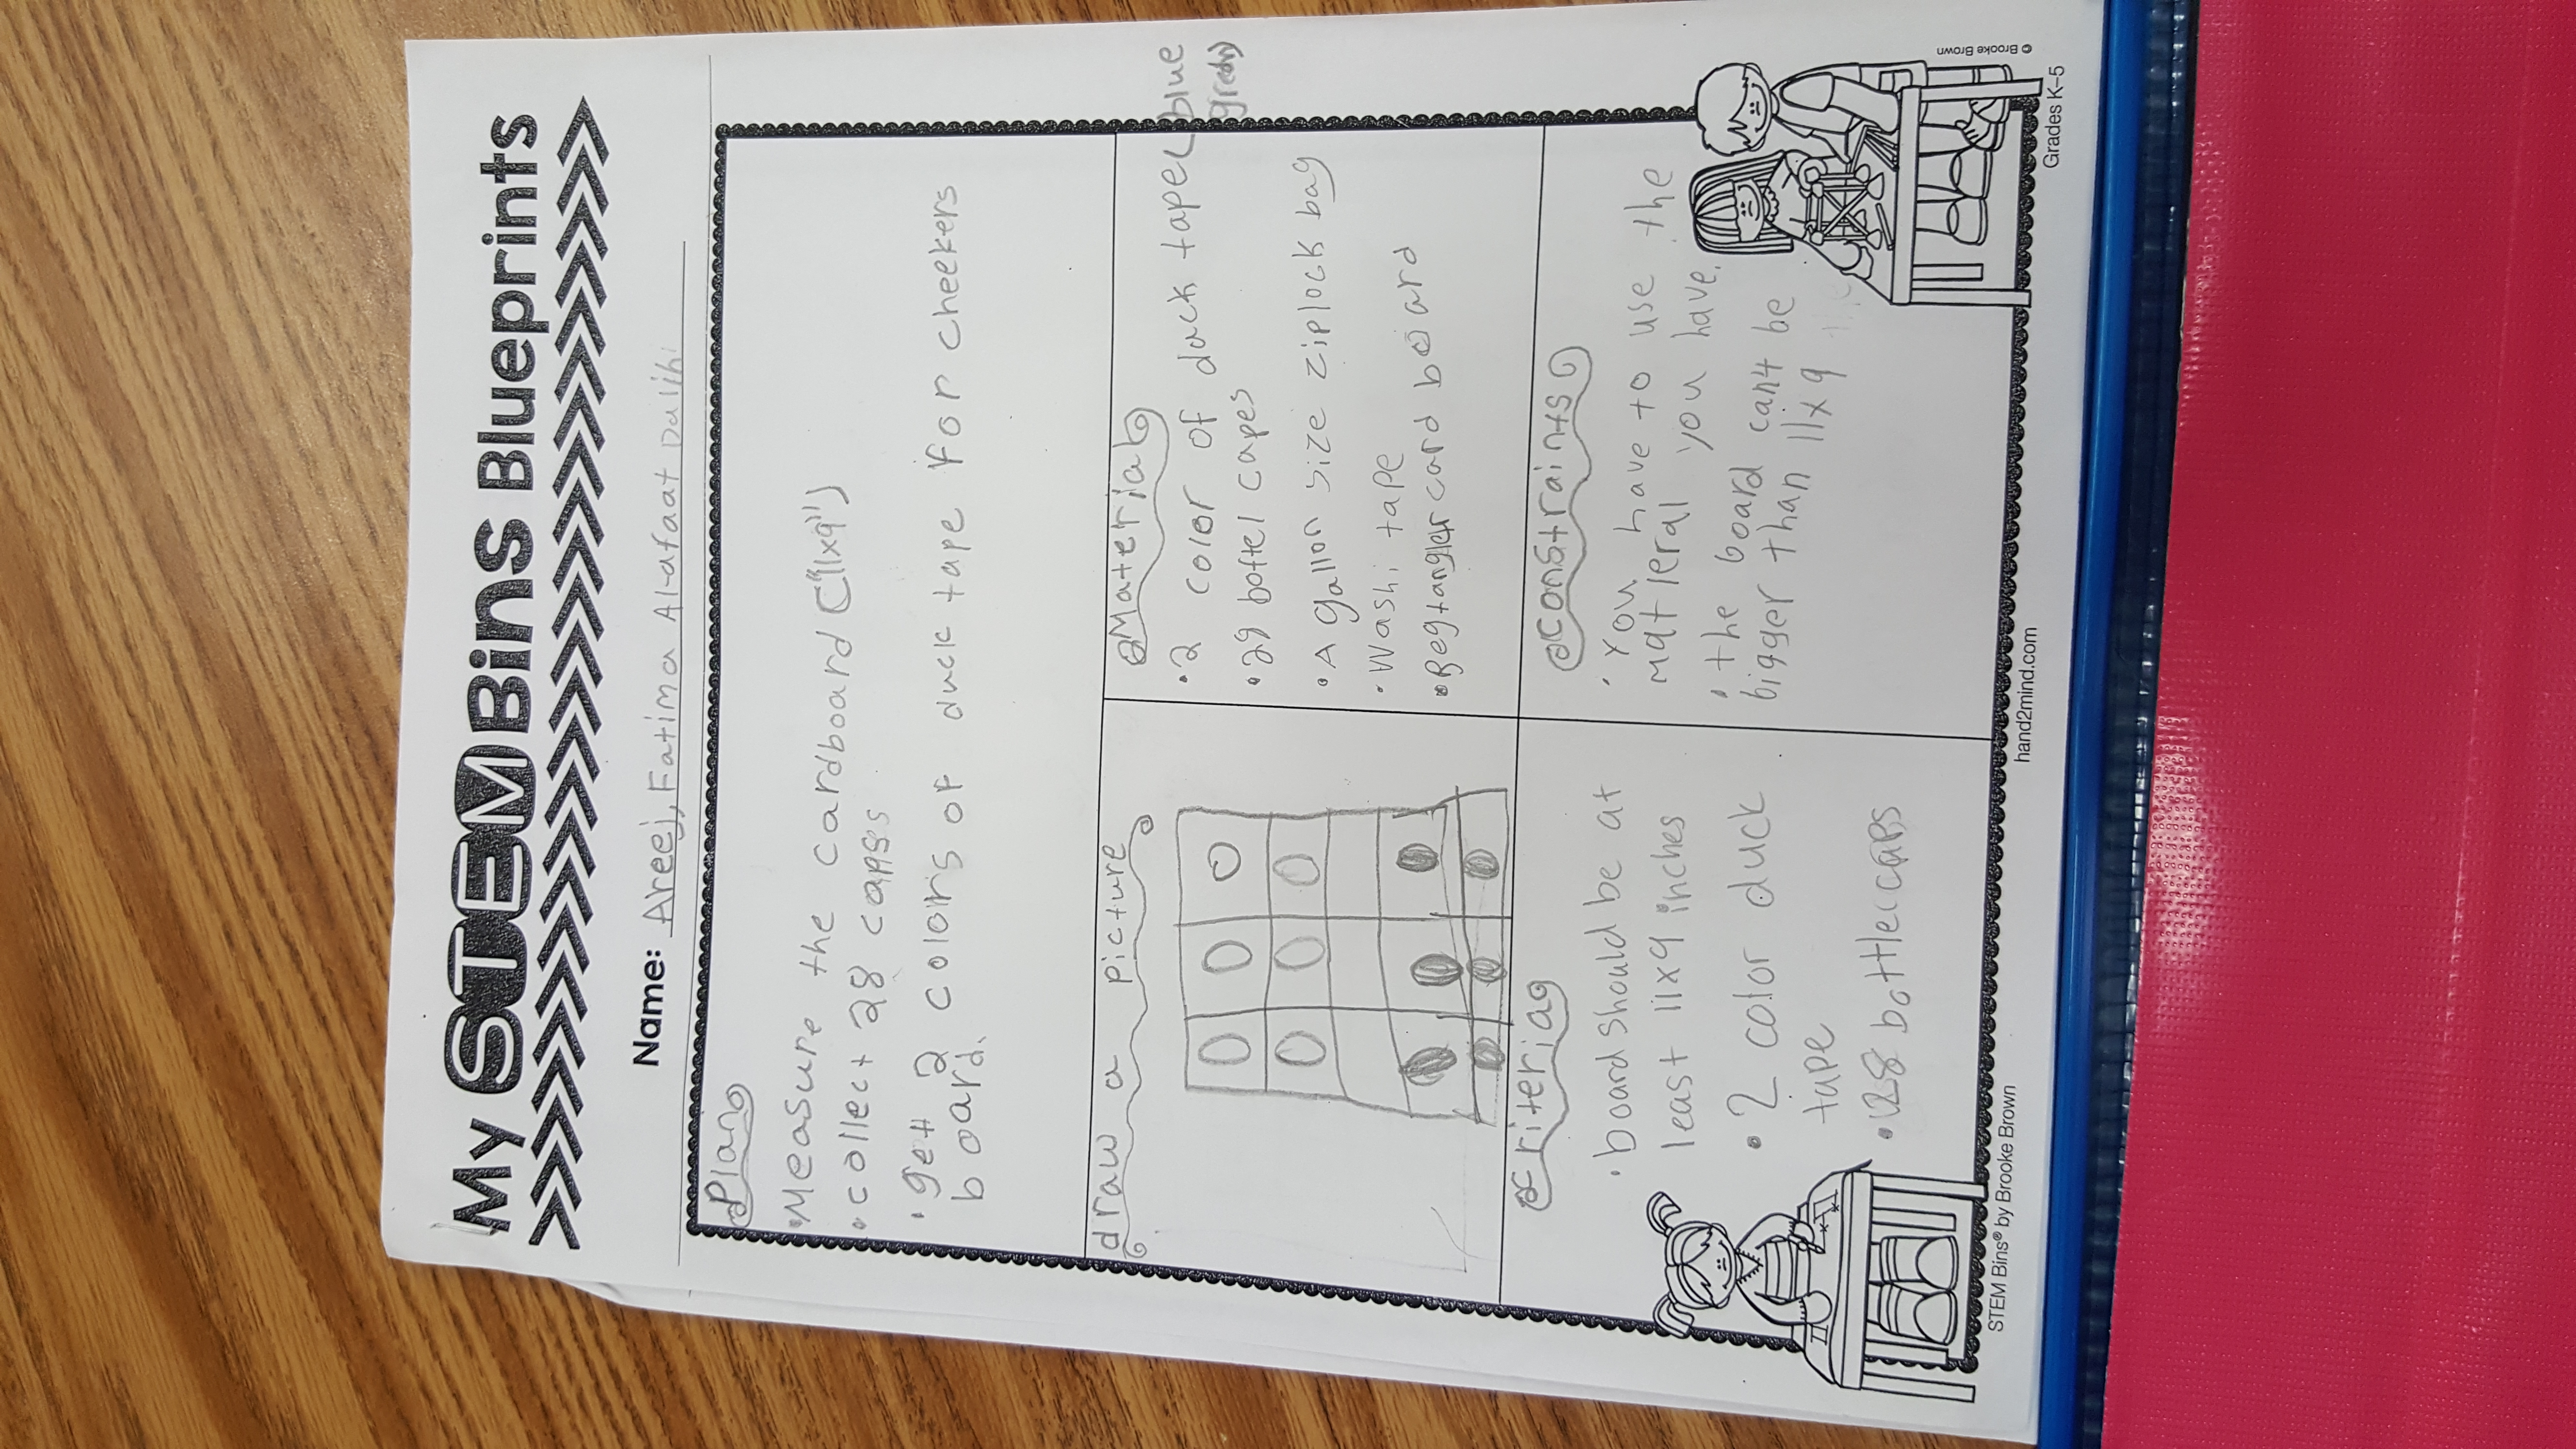 My STEM Bins Blueprints
Name: Areej, Fatima Al-afaat Dalihi
Plan
• Measure the cardboard ("11x9")
• collect 28 capes
• get 2 colors of duck tape for cheekers
board.
draw a picture
Material
• 2 color of duck tape (blue
green)
• 28 bottel capes
• A gallon size ziplock bag
• Washi tape
• Regtangler card board
criteria
• board should be at
least 11x9 inches
• 2 color duck
tape
• 28 bottlecaps
constraints
• You have to use the
matieral you have.
• the board can't be
bigger than 11x9
STEM Bins® by Brooke Brown
hand2mind.com
Grades K–5
© Brooke Brown